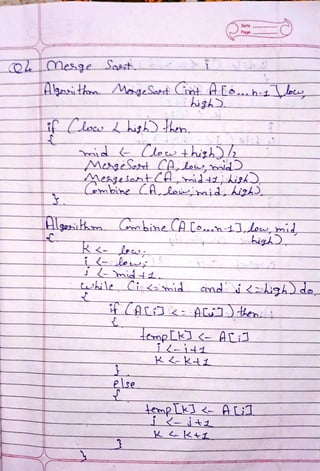 Date
Page
Q4 Merge Sort.
Algorithm MergeSort (int A[0...n-1], low,
high).
if (low < high) then.
{
mid <- (low + high)/2
MergeSort (A, low, mid)
MergeSort (A, mid+1, high)
Combine (A, low, mid, high).
}
Algorithm Combine (A[0...n-1], low, mid,
high).
{
k <- low;
i <- low;
j <- mid+1.
while (i <= mid and j <= high) do
{
if (A[i] <= A[j]) then
{
temp[k] <- A[i]
i <- i+1
k <- k+1
}
else
{
temp[k] <- A[j]
j <- j+1
k <- k+1.
}
}